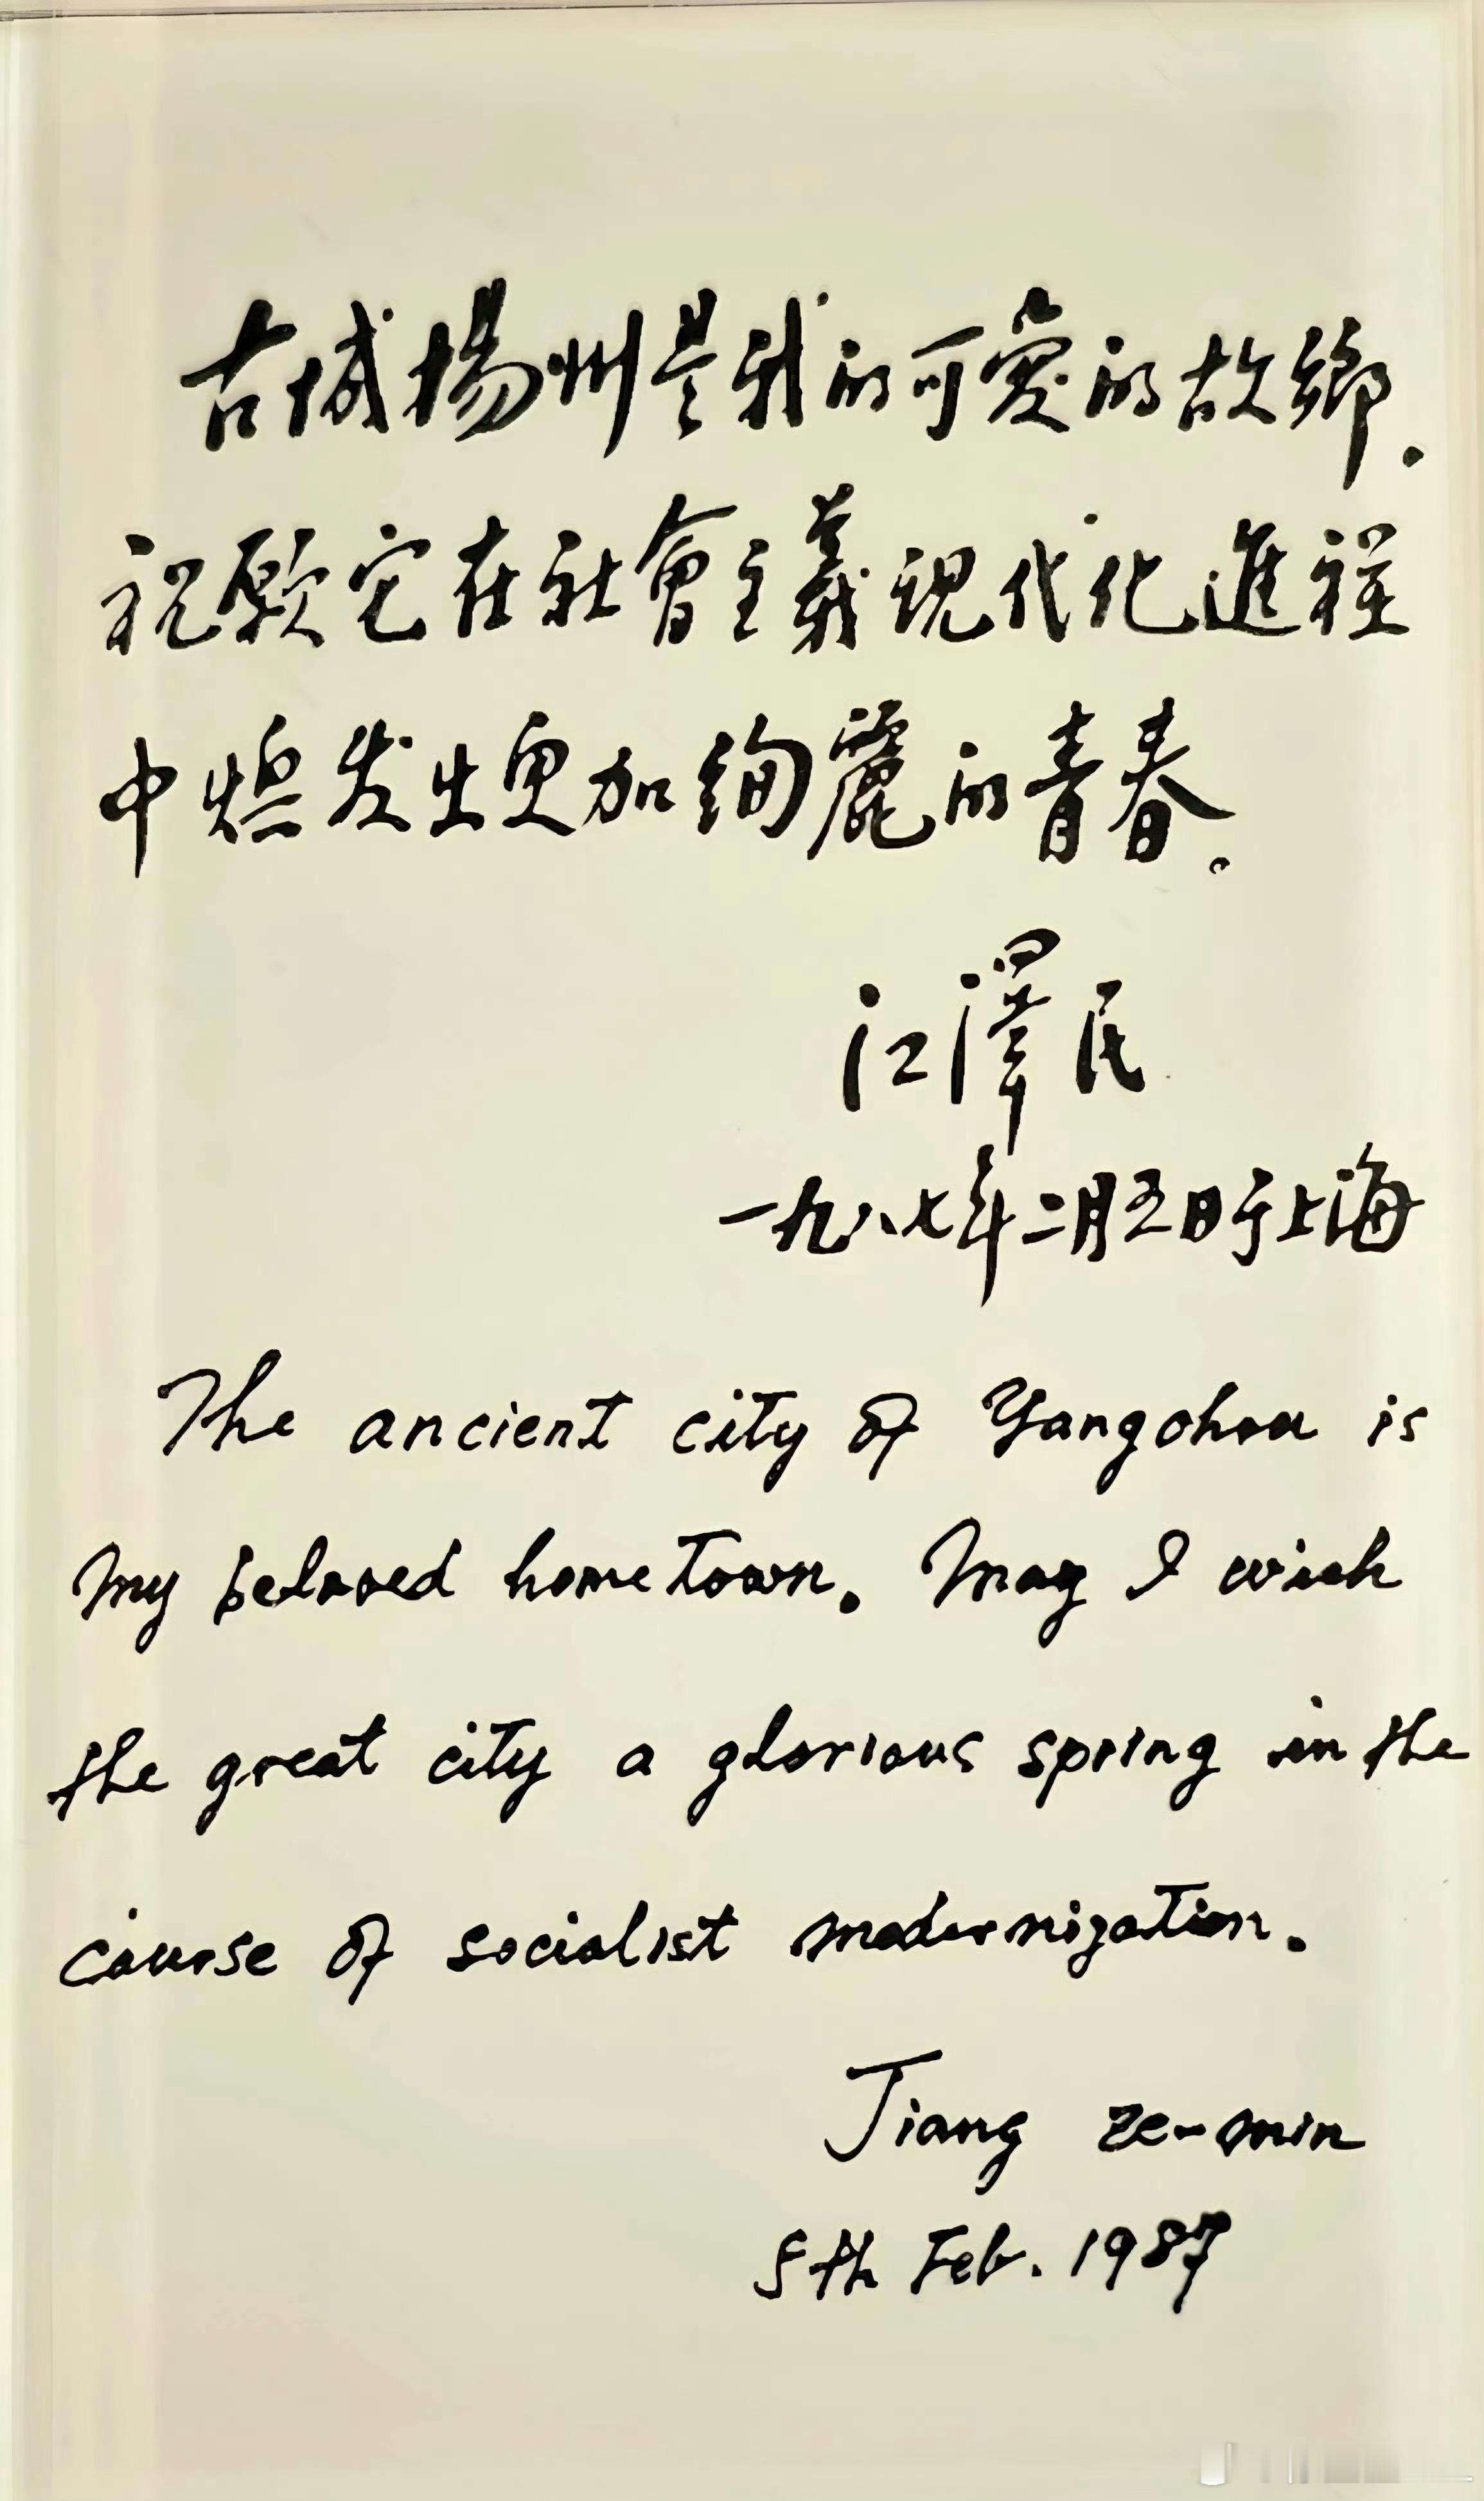 古城揚州是我的可愛的故鄉.
祝願它在社會主義現代化進程
中焕发出更加絢麗的青春。
江澤民
一九八七年二月五日于上海
The ancient city of Yangzhou is
my beloved hometown. May I wish
the great city a glorious spring in the
course of socialist modernization.
Jiang ze-min
5th Feb. 1987